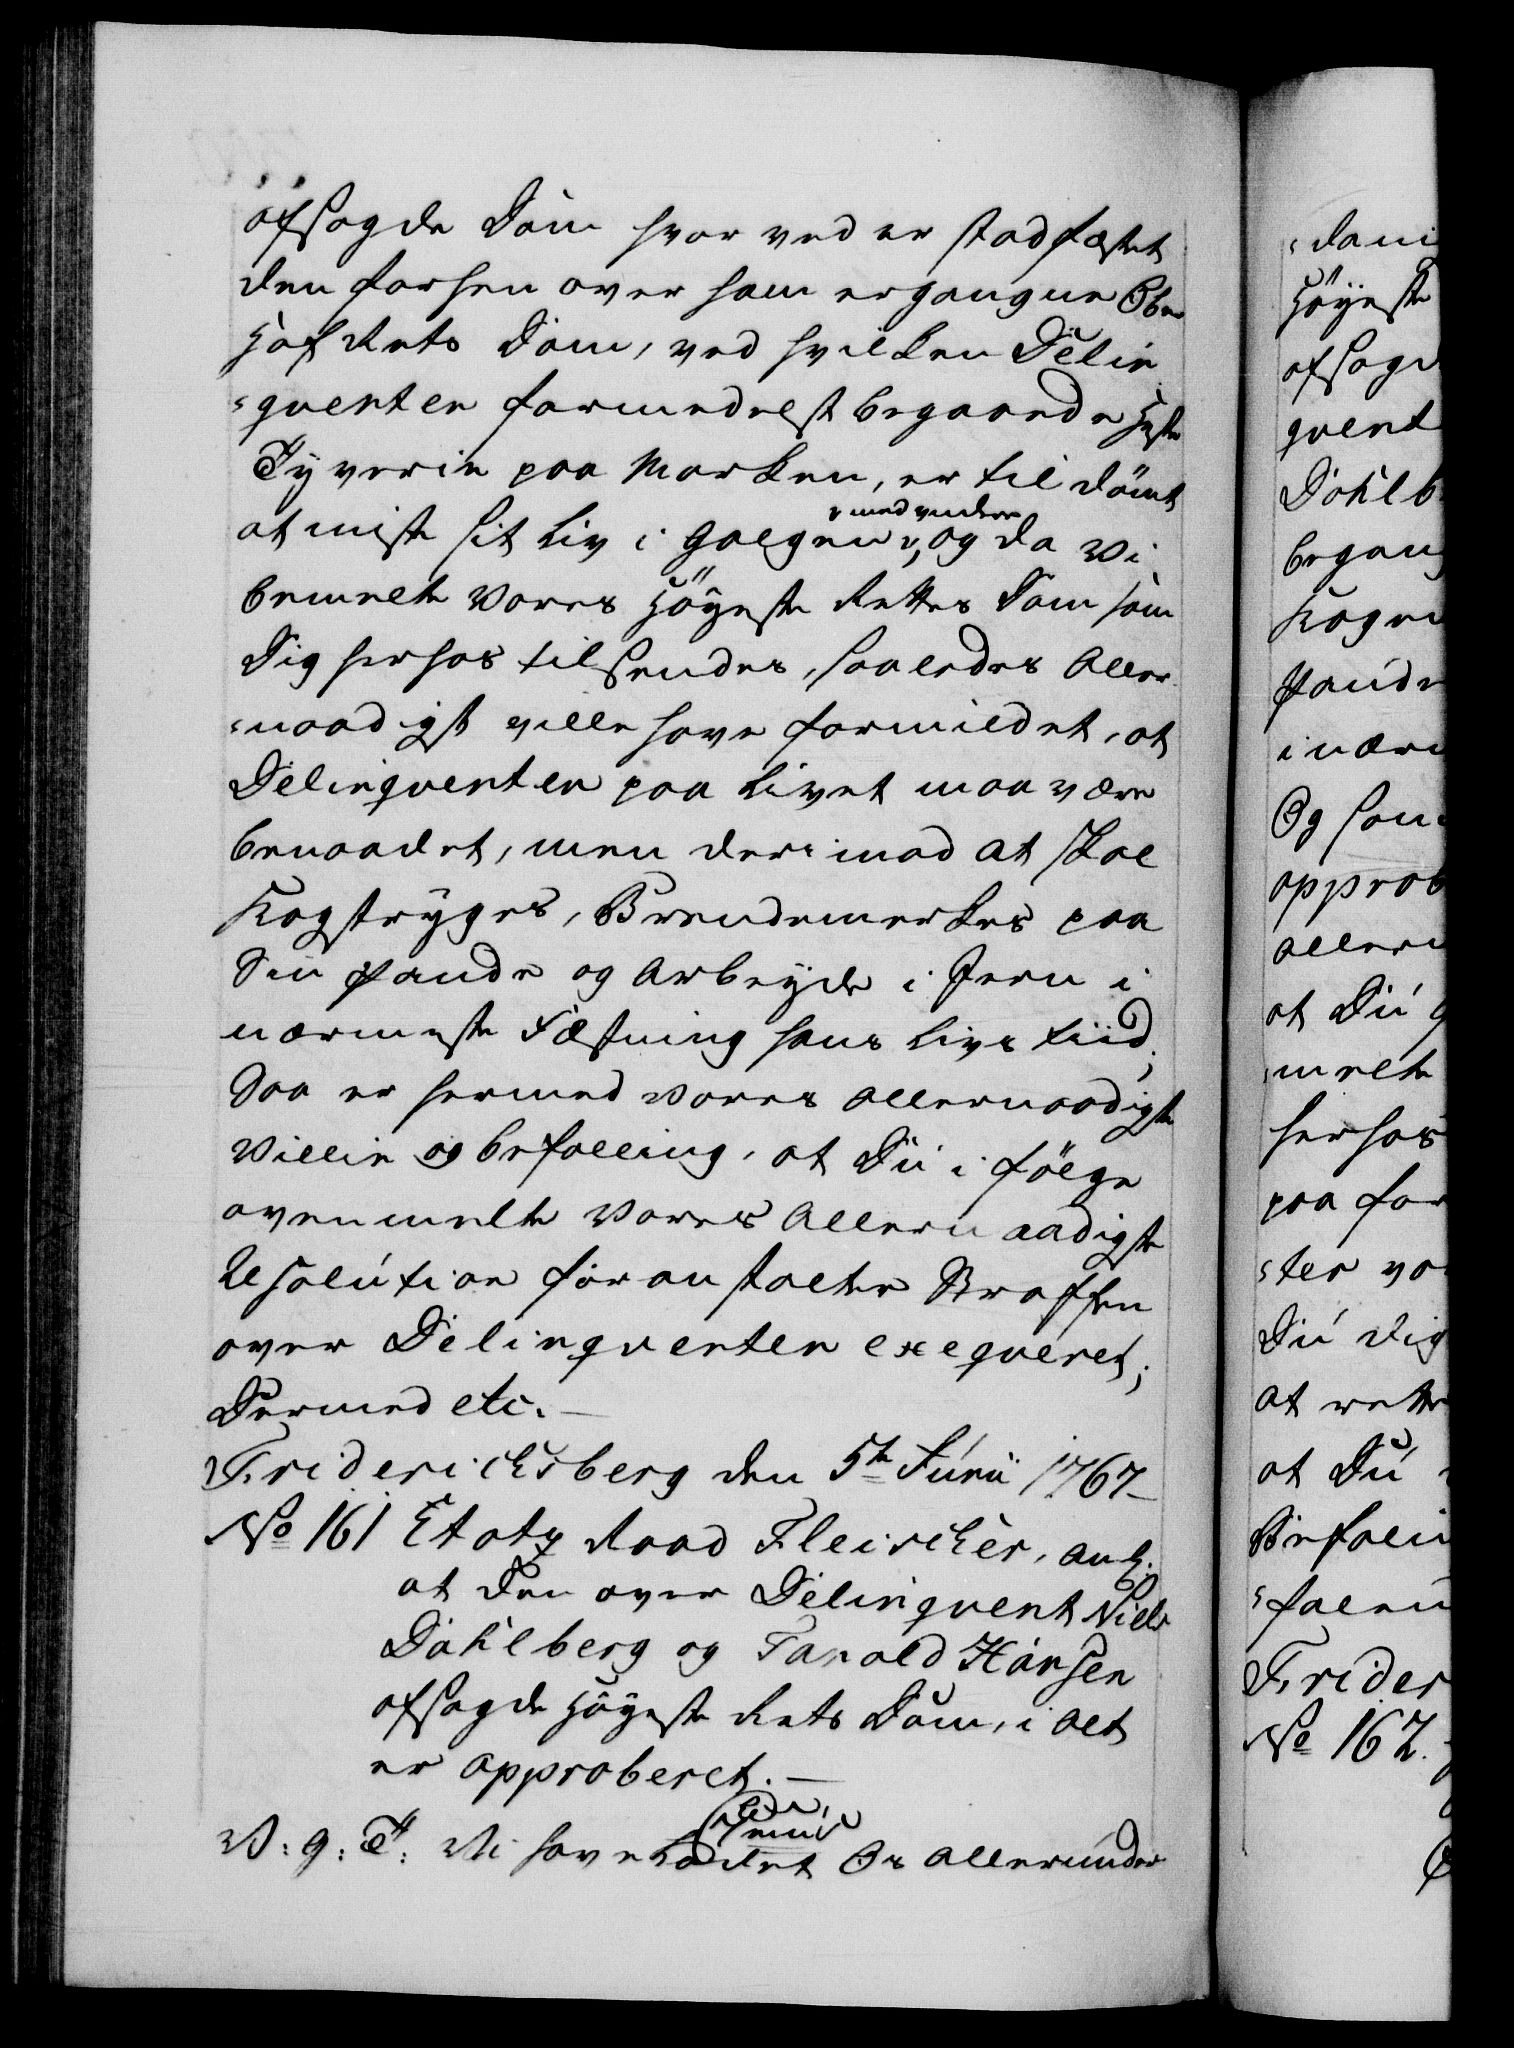 afsagde Dom hvorved er stadfæstet
den forhen over ham ergangne Ober
Hof Rets Dom, ved hvilken Delin
-qventen formedelst begaaede Heste
Tyverie paa Marken, er til dömt
at miste sit Liv i Galgen
med videre
, og da Vi
bemelte Vores Höyeste Rettes Dom som
Dig herhos tilsendes, saaledes Aller
-naadigst ville have formildet, at
Delinqventen paa Livet maa være
benaadet, men derimod at skal
Kagstryges, Brendemerkes paa
Sin Pande og Arbeyde i Jern i
nærmeste Fæstning hans Livs tiid,
Saa er hermed Vores allernaadigste
Villie og befalling, at Du i fölge
ovenmelte Vores Allernaadigste
Resolution foranstalter Straffen
over Delinqventen exeqveret;
Dermed etc. —
Friderichsberg den 5te Junii 1767
No 161 Etatz Raad Fleischer, ank:
at den over Delinqvent Niels
Dahlberg og Tarald Hansen
afsagde Höyeste Rets Dom, i Alt
er approberet. —
V: g: T: Vi have ladet Os allerunder
-dani
Höyeste
afsagd
qvent
Dahlb
begang
Kagen
Pande
i nærm
Og som
approb
allern
at Du
-melte
herhos
paa for
-ter vo
Du dig
at rette
at Du
Befali
-falen
Frider
No 162.